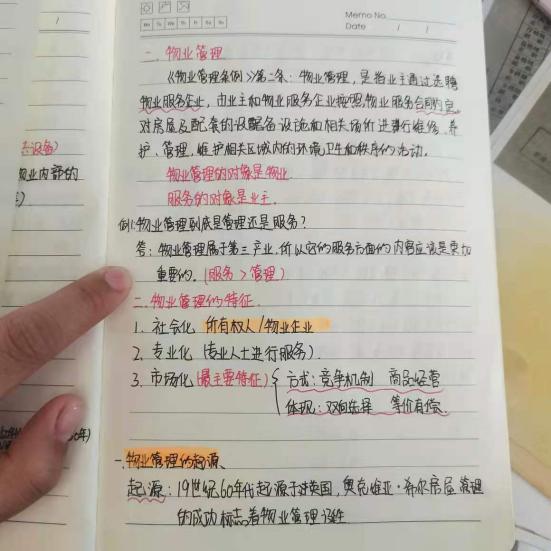 Memo No.
Date / /
Mo Tu We Th Fr Sa Su
二、物业管理
《物业管理条例》第二条：物业管理，是指业主通过选聘
物业服务企业，由业主和物业服务企业按照物业服务合同约定，
对房屋及配套的设施设备和相关场地进行维修、养
护、管理，维护相关区域内的环境卫生和秩序的活动。
物业管理的对象是物业，
服务的对象是业主。
例1：物业管理到底是管理还是服务？
答：物业管理属于第三产业，所以它的服务方面的内容应该是更加
重要的。(服务＞管理)
二、物业管理的特征
1. 社会化 所有权人/物业企业
2. 专业化 (专业人士进行服务)
3. 市场化(最主要特征) { 方式：竞争机制 商品经营
体现：双向选择 等价有偿
一、物业管理的起源、
起源：19世纪60年代起源于英国，奥克维亚·希尔房屋管理
的成功标志着物业管理诞生
/
设备)
物业内部的